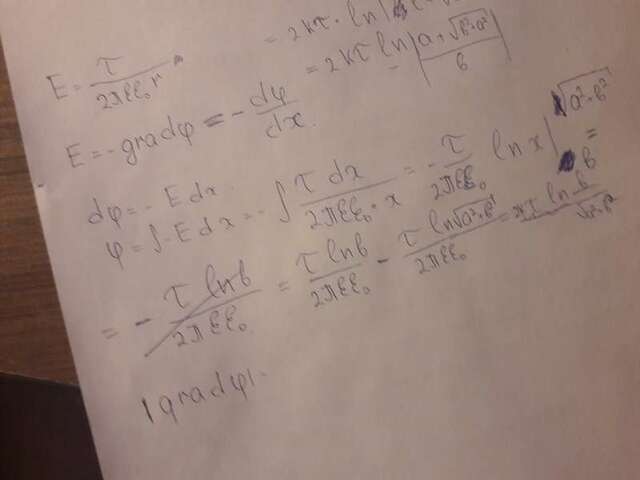 = 2kτ · ln
E = τ / 2πεε₀r = 2kτ ln |a + √b²+a² / b|
E = - gradφ = - dφ / dx
dφ = - E dx
φ = ∫-E dx = - ∫ τ dx / 2πεε₀ · x = - τ / 2πεε₀ ln x | √a²+b² b =
= - τ ln b / 2πεε₀ = τ ln b / 2πεε₀ - τ ln √a²+b² / 2πεε₀ = τ ln b / √a²+b²
|gradφ|